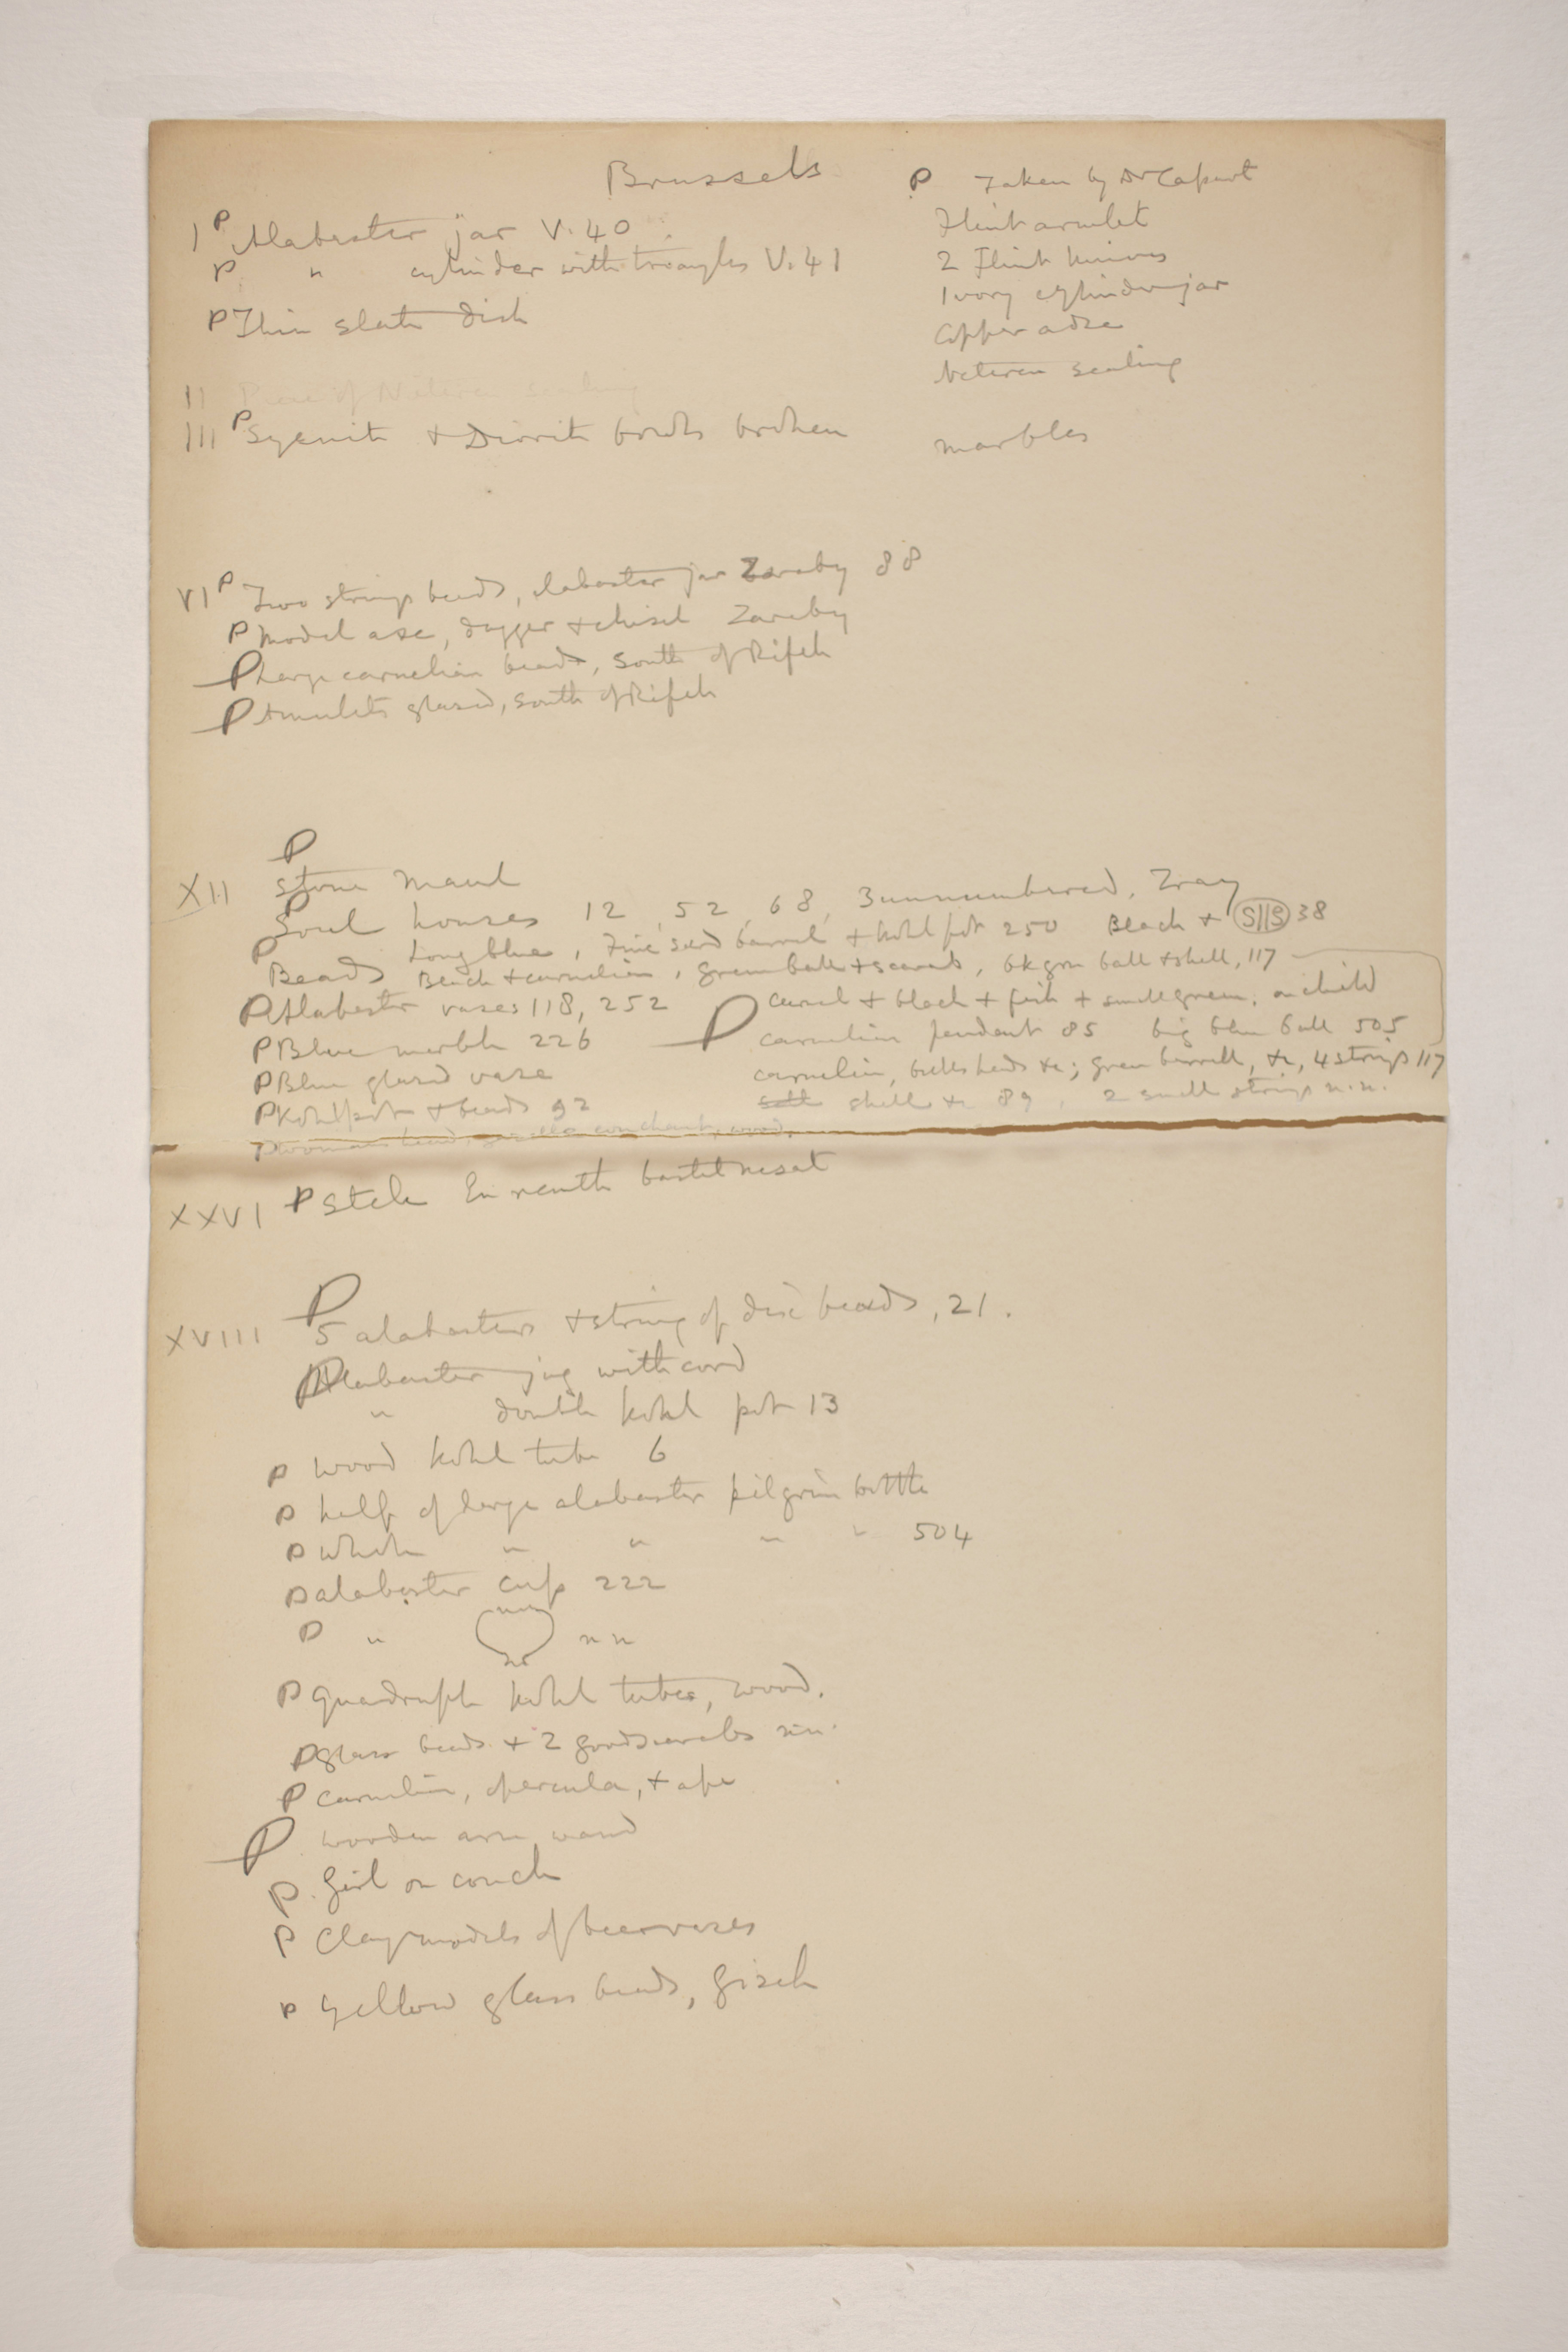 Brussels
I P Alabaster jar V. 40
P " cylinder with triangles V. 41
P Thin slate dish
II Piece of Neteren sealing
III P Syenite & Diorite bowls broken
P Taken by Dr Capart
Flint armlet
2 Flint knives
Ivory cylinder jar
Copper adze
Neteren sealing
marbles
VI P Two strings beads, alabaster jar Zaraby 88
P Model axe, dagger & chisel Zaraby
P Large carnelian beads, South of Rifeh
P Amulets glazed, South of Rifeh
P
XII Stone maul
P Soul houses 12, 52, 68, 3 unnumbered, Tray
P Beads Long blue, Fine seed barrel & kohl pot 250 Black & 38
Black & carnelian, green ball & scarab, bk grn ball & shell, 117
P Alabaster vases 118, 252
P carnel & black & fish & small green, on child
P Blue marble 226
carnelian pendant 85 big blue ball 505
P Blue glazed vase
carnelian, bulls heads &c; green barrell, &c, 4 strings 117
P Kohl pot & beads 92
shell &c 89, 2 small strings n.n.
P Woman's head, couchant, wood.
XXVI P Stele
P
XVIII 5 alabasters & string of disc beads, 21.
P Alabaster jug with cord
" double kohl pot 13
P Wood kohl tube 6
P half of large alabaster pilgrim bottle
P whole " " " " 504
P alabaster cup 222
P " n n
P quadruple kohl tubes, wood.
P glass beads & 2 good scarabs n.n.
P carnelian, opercula, & ape
P wooden arm wand
P. Girl on couch
P Clay models of beer vases
P yellow glass beads, Gizeh